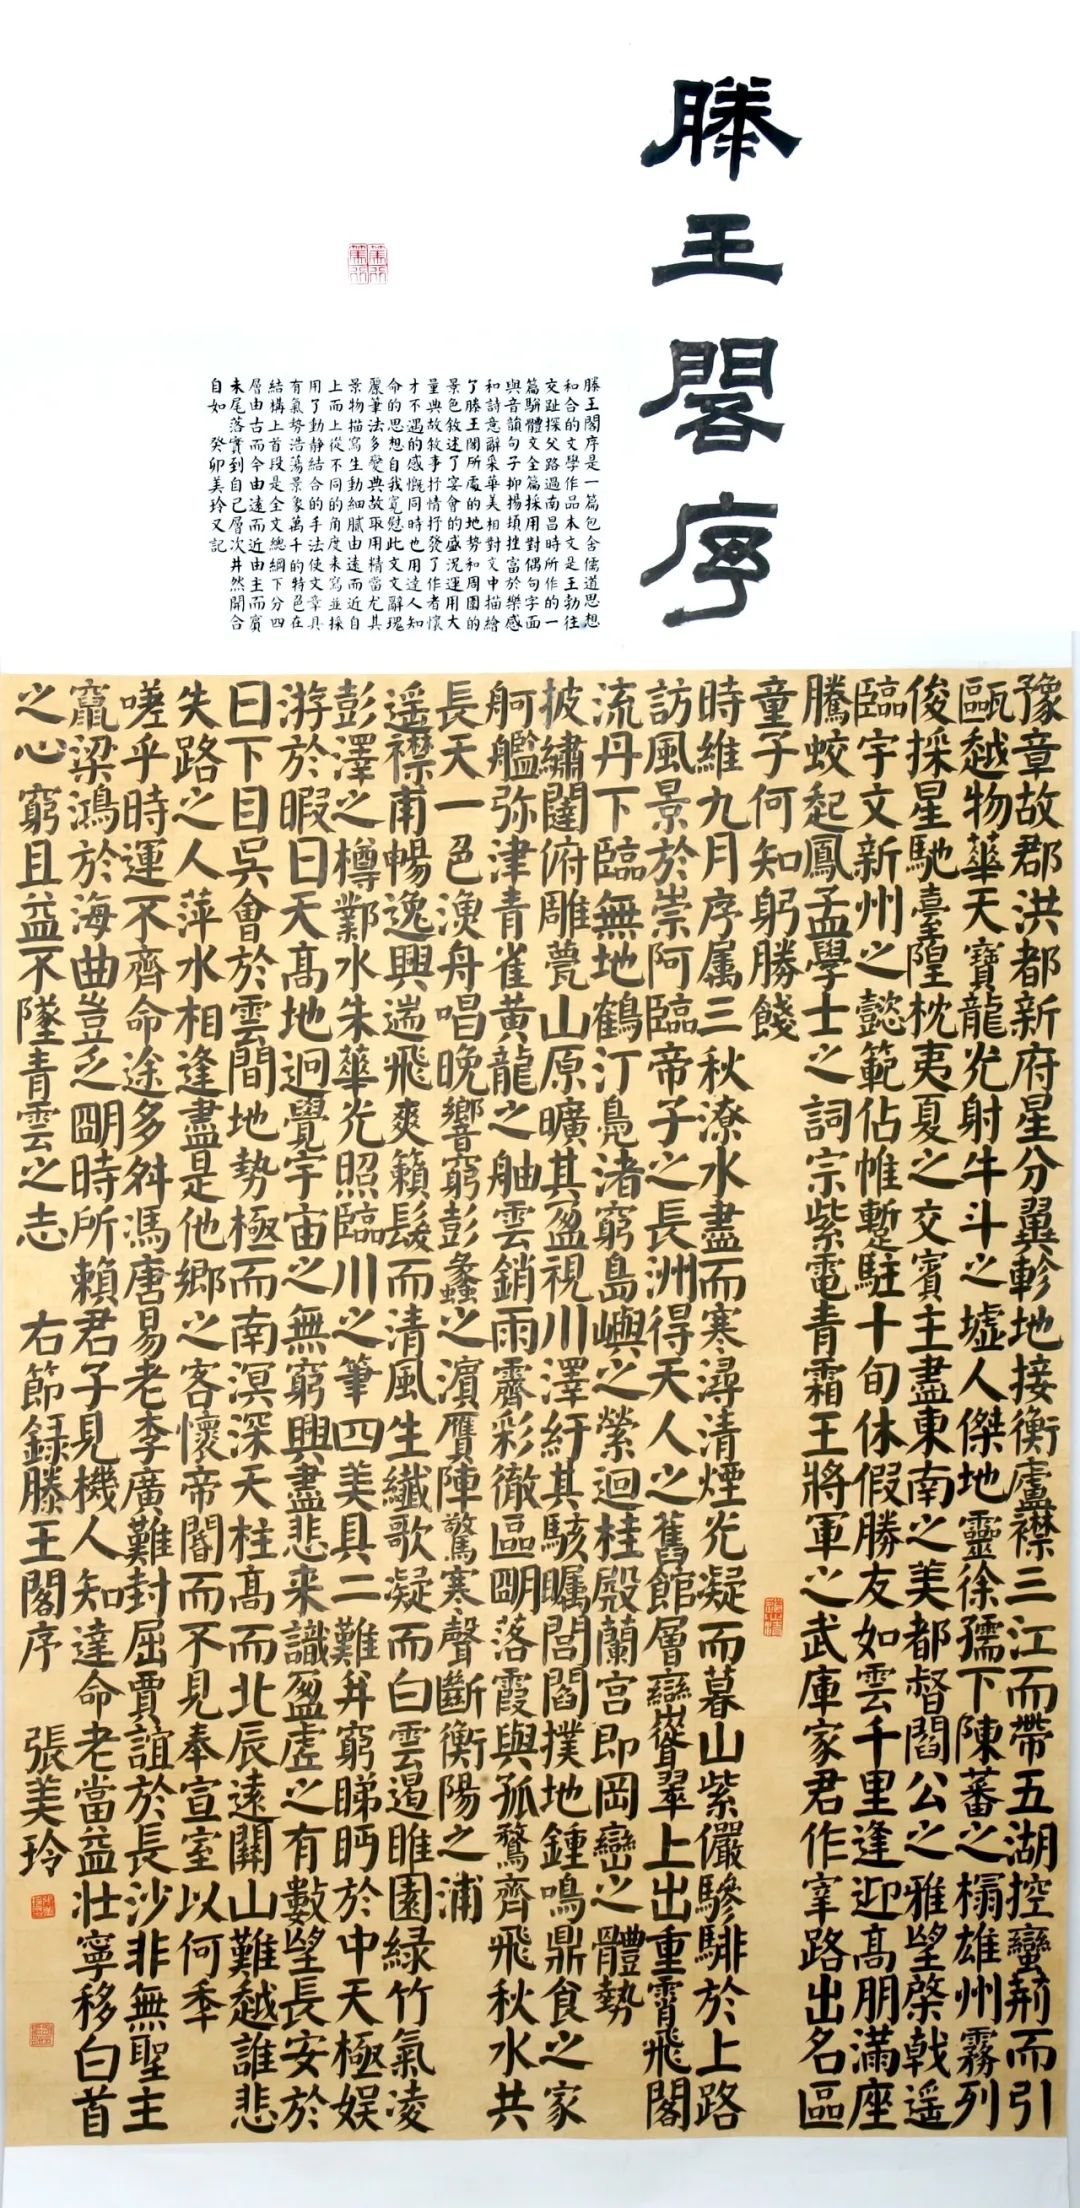 滕王閣序
滕王閣序是一篇包含儒道思想
和合的文學作品本文是王勃往
交趾探父路過南昌時所作的一
篇駢體文全篇採用對偶句字面
與音韻句子抑揚頓挫富於樂感
和詩意辭采華美相對文中描繪
了滕王閣所處的地勢和周圍的
景色敘述了宴會的盛況運用大
量典故敘事抒情抒發了作者懷
才不遇的感慨同時也用達人知
命的思想自我寬慰此文文辭瑰
麗筆法多變典故取用精當尤其
景物描寫生動細膩由遠而近自
上而上從不同的角度來寫並採
用了動靜結合的手法使文章具
有氣勢浩蕩景象萬千的特色在
結構上首段是全文總綱下分四
層由古而今由遠而近由主而賓
末尾落實到自己層次井然開合
自如 癸卯美玲又記
豫章故郡洪都新府星分翼軫地接衡廬襟三江而帶五湖控蠻荊而引
甌越物華天寶龍光射牛斗之墟人傑地靈徐孺下陳蕃之榻雄州霧列
俊採星馳臺隍枕夷夏之交賓主盡東南之美都督閻公之雅望棨戟遥
臨宇文新州之懿範佔帷暫駐十旬休假勝友如雲千里逢迎高朋滿座
騰蛟起鳳孟學士之詞宗紫電青霜王將軍之武庫家君作宰路出名區
童子何知躬勝餞
時維九月序属三秋潦水盡而寒潯清煙光凝而暮山紫儼驂騑於上路
訪風景於崇阿臨帝子之長洲得天人之舊館層巒聳翠上出重霄飛閣
流丹下臨無地鶴汀鳧渚窮島嶼之縈迴桂殿蘭宮即岡巒之體勢
披繡闥俯雕甍山原曠其盈視川澤紆其駭矚閭閻撲地鍾鳴鼎食之家
舸艦弥津青雀黃龍之舳雲銷雨霽彩徹區明落霞與孤鶩齊飛秋水共
長天一色漁舟唱晚響窮彭蠡之濱雁陣驚寒聲斷衡陽之浦
遥襟甫暢逸興遄飛爽籟發而清風生纖歌凝而白雲遏睢園綠竹氣凌
彭澤之樽鄴水朱華光照臨川之筆四美具二難并窮睇眄於中天極娱
游於暇日天高地迥覺宇宙之無窮興盡悲來識盈虛之有數望長安於
日下目吳會於雲間地勢極而南溟深天柱高而北辰遠關山難越誰悲
失路之人萍水相逢盡是他鄉之客懷帝閽而不見奉宣室以何年
嗟乎時運不齊命途多舛馮唐易老李廣難封屈賈誼於長沙非無聖主
竄梁鴻於海曲豈乏明時所賴君子見機人知達命老當益壯寧移白首
之心窮且益不墜青雲之志 右節録滕王閣序 張美玲